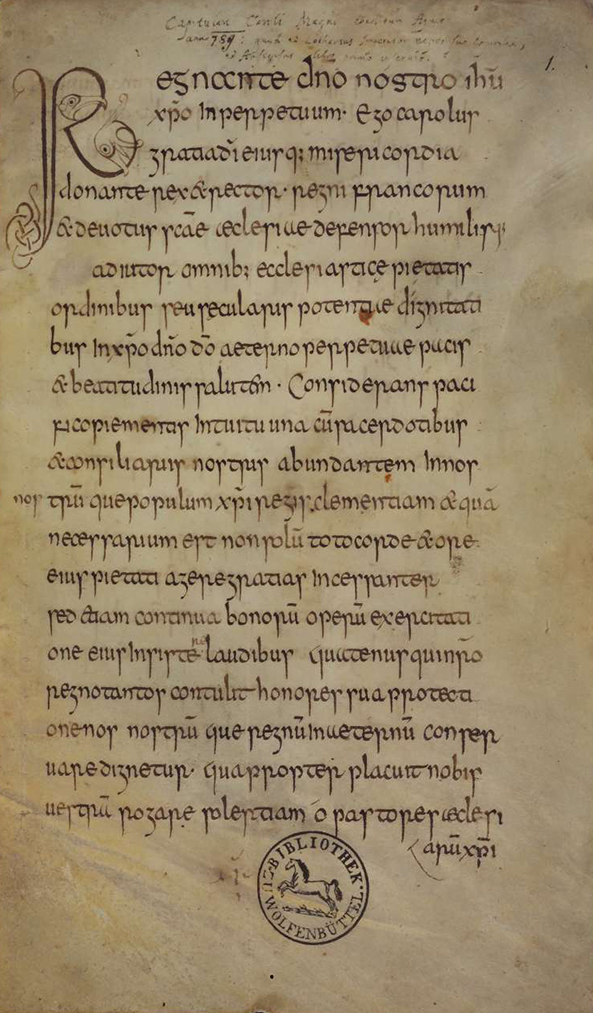 Capitulare Caroli Magni
anno 789:
1.
Regnante dno nostro ihu
xpo In perpetuum· Ego carolus
gratia di eiusq; misericordia
donante rex & rector· regni francorum
& deuotus scae aeclesiae defensor humilisq;
adiutor omnib; ecclesiasticę pietatis
ordinibus seu secularis potentiae dignitati
bus In xpo dno do aeterno perpetuae pacis
& beatitudinis salutem · Considerans paci
fico piementis Intuitu una cū sacerdotibus
& consiliariis nostris abundantem In nos
nostrū que populum xpi regis clementiam & quā
necessarium est non solū toto corde & ore
eius pietati agere gratias Incessanter
sed etiam continua bonorū operū exercitati
one eius Insistere laudibus quatenus qui nro
regno tantos contulit honores sua protecti
one nos nostrū que regnū In aeternū conser
uare dignetur· qua propter placuit nobis
uestrā rogare solertiam o pastores aeclesi
arū xpi
BIBLIOTHEK
WOLFENBÜTTEL